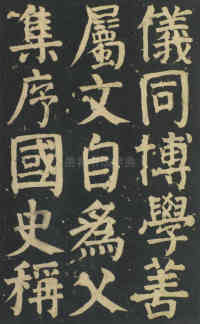 儀同博學善
屬文自為父
集序國史稱